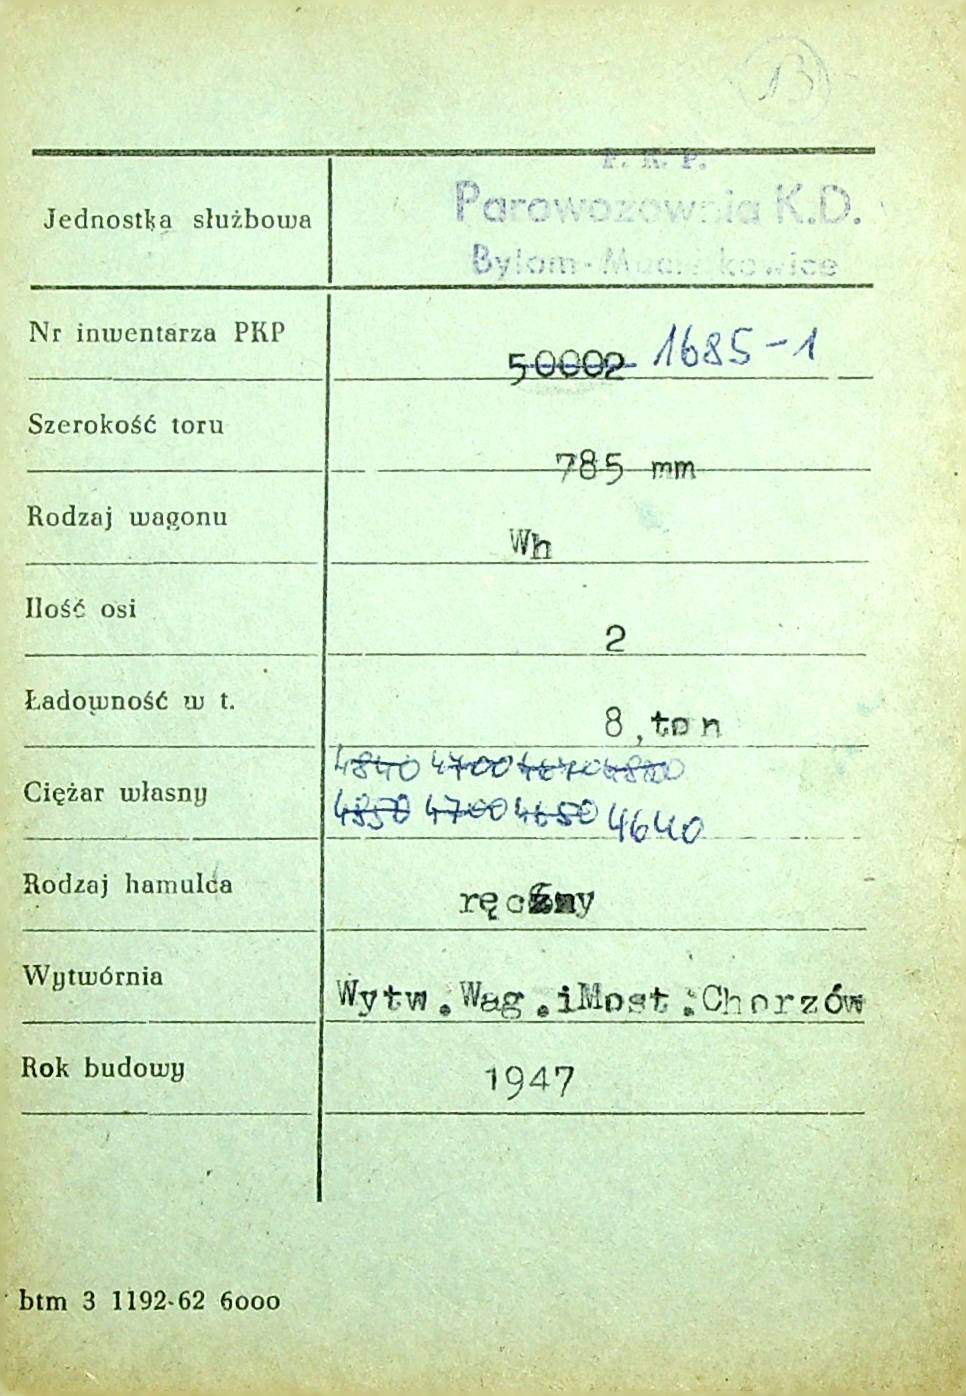 13
P. K. P.
Jednostka służbowa Parowozownia K.D.
Bytom-
Nr inwentarza PKP 50002 1685-1
Szerokość toru 785 mm
Rodzaj wagonu Wh
Ilość osi 2
Ładowność w t. 8,ton
4840 4700 4670
Ciężar własny 4850 4700 4650 4640
Rodzaj hamulca ręczny
Wytwórnia Wytw.Wag.iMost.Chorzów
Rok budowy 1947
btm 3 1192-62 6000